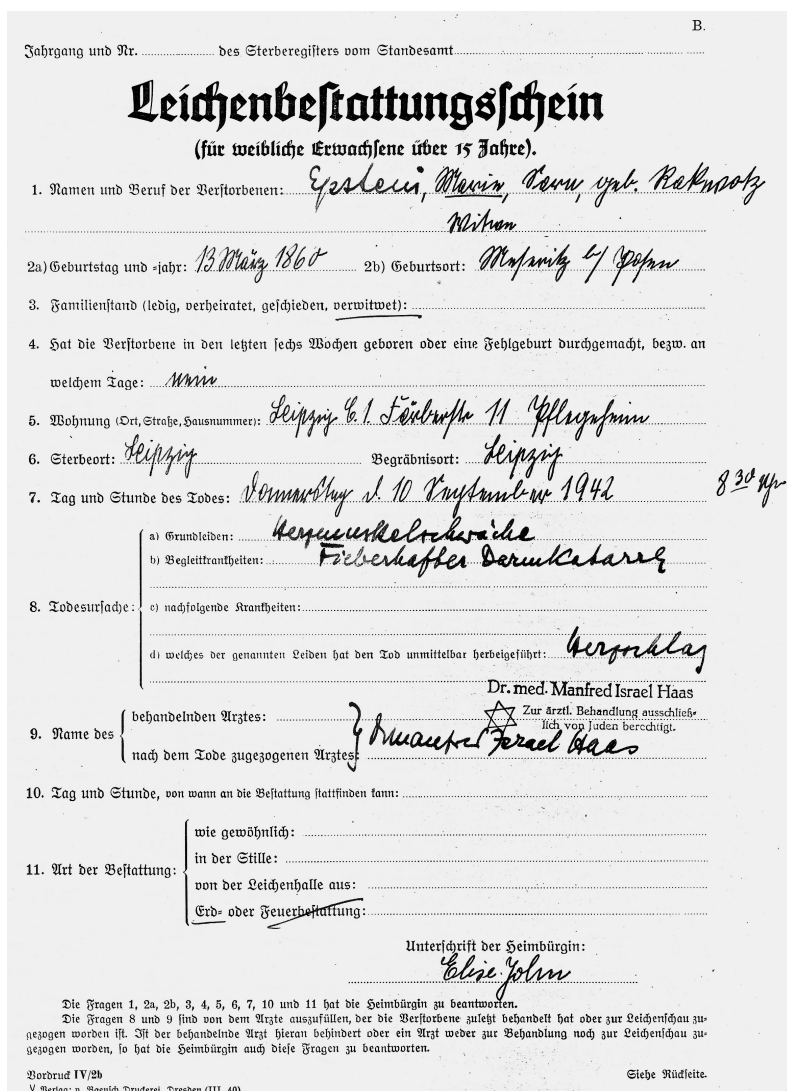 B.
Jahrgang und Nr. des Sterberegisters vom Standesamt
Leichenbestattungsschein
(für weibliche Erwachsene über 15 Jahre).
1. Namen und Beruf der Verstorbenen: Epstein, Marie, Sara, geb. Rakwotz
Witwe
2a) Geburtstag und =jahr: 13 März 1860 2b) Geburtsort: Meseritz b/ Posen
3. Familienstand (ledig, verheiratet, geschieden, verwitwet):
4. Hat die Verstorbene in den letzten sechs Wochen geboren oder eine Fehlgeburt durchgemacht, bezw. an
welchem Tage: nein
5. Wohnung (Ort, Straße, Hausnummer): Leipzig C.1 Färberstr 11 Pflegeheim
6. Sterbeort: Leipzig Begräbnisort: Leipzig
7. Tag und Stunde des Todes: Donnerstag d. 10 September 1942 8 30 Uhr
a) Grundleiden: Herzmuskelschwäche
b) Begleitkrankheiten: Fieberhafter Darmkatarrh
8. Todesursache: c) nachfolgende Krankheiten:
d) welches der genannten Leiden hat den Tod unmittelbar herbeigeführt: Herzschlag
Dr. med. Manfred Israel Haas
Zur ärztl. Behandlung ausschließ-
lich von Juden berechtigt.
9. Name des behandelnden Arztes:
nach dem Tode zugezogenen Arztes: Dr Manfred Israel Haas
10. Tag und Stunde, von wann an die Bestattung stattfinden kann:
wie gewöhnlich:
in der Stille:
11. Art der Bestattung: von der Leichenhalle aus:
Erd= oder Feuerbestattung:
Unterschrift der Heimbürgin:
Elise John
Die Fragen 1, 2a, 2b, 3, 4, 5, 6, 7, 10 und 11 hat die Heimbürgin zu beantworten.
Die Fragen 8 und 9 sind von dem Arzte auszufüllen, der die Verstorbene zuletzt behandelt hat oder zur Leichenschau zu=
gezogen worden ist. Ist der behandelnde Arzt hieran behindert oder ein Arzt weder zur Behandlung noch zur Leichenschau zu=
gezogen worden, so hat die Heimbürgin auch diese Fragen zu beantworten.
Vordruck IV/2b Siehe Rückseite.
Druckerei, Dresden (III. 40)